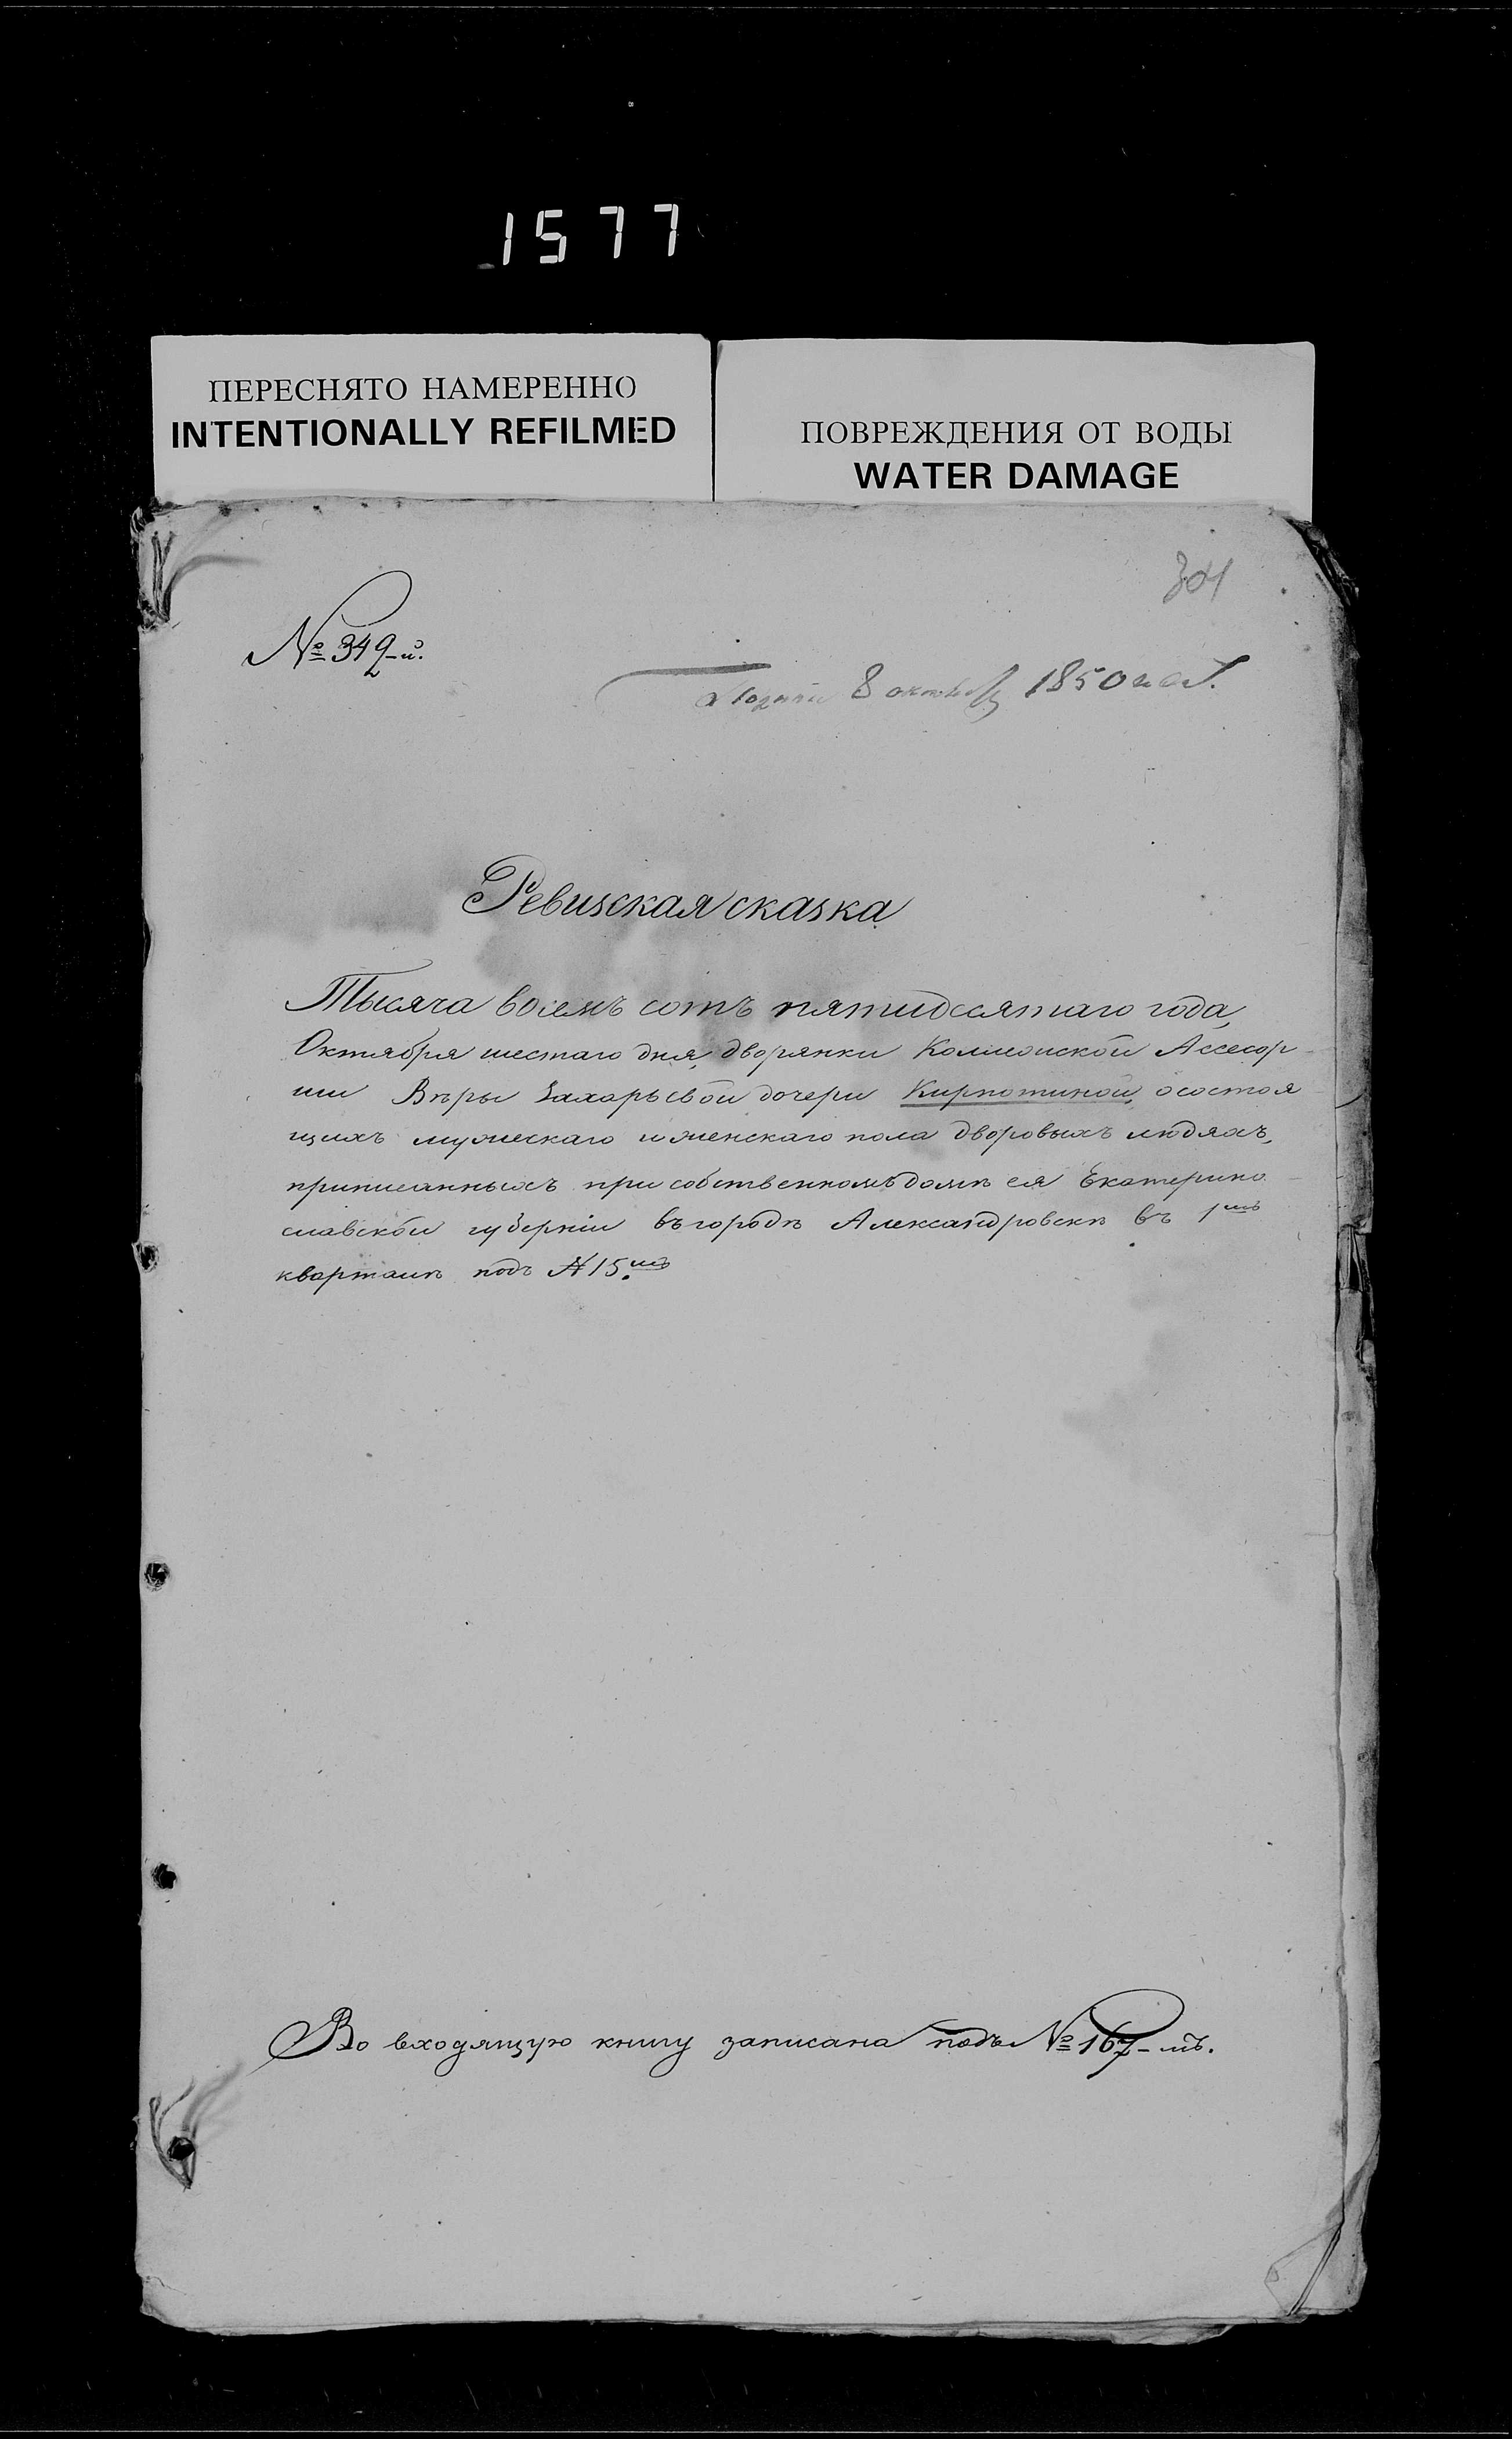 1577
ПЕРЕСНЯТО НАМЕРЕННО
INTENTIONALLY REFILMED
ПОВРЕЖДЕНИЯ ОТ ВОДЫ
WATER DAMAGE
304
№ 349-й.
8 октября 1850 года.
Ревизская сказка
Тысяча восемь сотъ пятидесятаго года,
Октября шестаго дня, дворянки Коллежской Ассесор-
ши Вѣры Захарьевой дочери Кирпотиной, о состоя
щихъ мужескаго и женскаго пола дворовыхъ людяхъ,
приписанныхъ при собственномъ домѣ ея Екатерино-
славской губерніи въ городѣ Александровскѣ въ 1мъ
кварталѣ подъ № 15.мъ
Во входящую книгу записана подъ № 167-мъ.